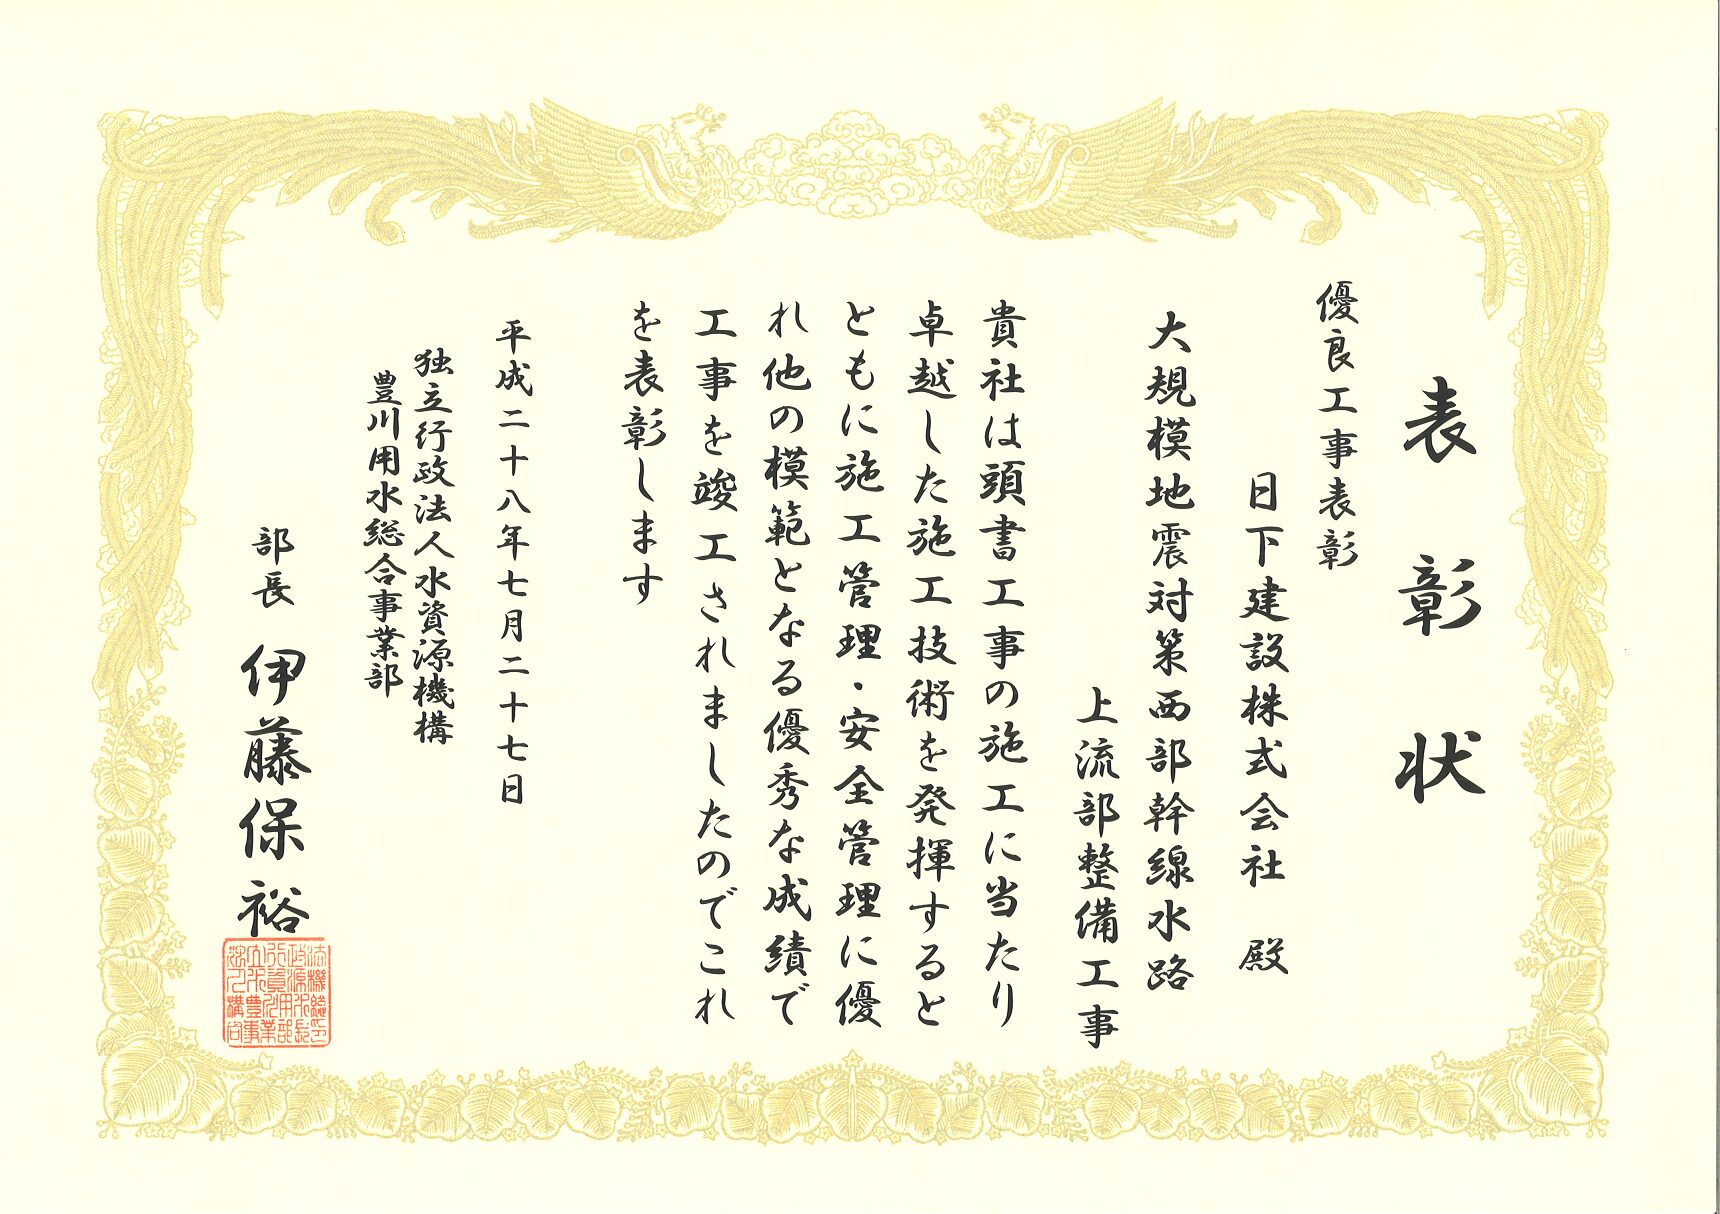 表彰状
優良工事表彰
日下建設株式会社 殿
大規模地震対策西部幹線水路
上流部整備工事
貴社は頭書工事の施工に当たり
卓越した施工技術を発揮すると
ともに施工管理・安全管理に優
れ他の模範となる優秀な成績で
工事を竣工されましたのでこれ
を表彰します
平成二十八年七月二十七日
独立行政法人水資源機構
豊川用水総合事業部
部長 伊藤保裕